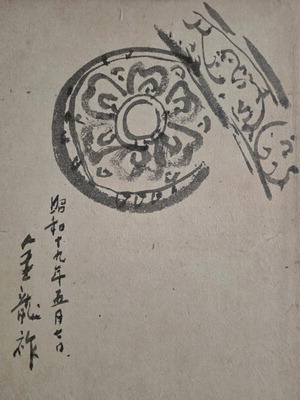 昭和十九年五月
金龍祚